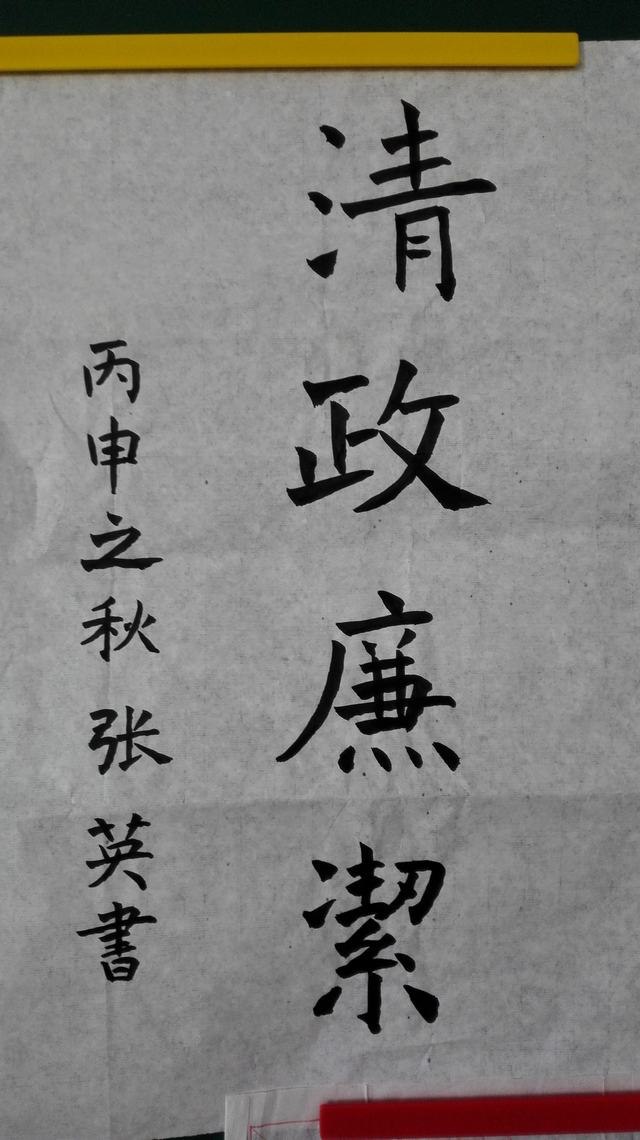 清政廉潔
丙申之秋 张英書